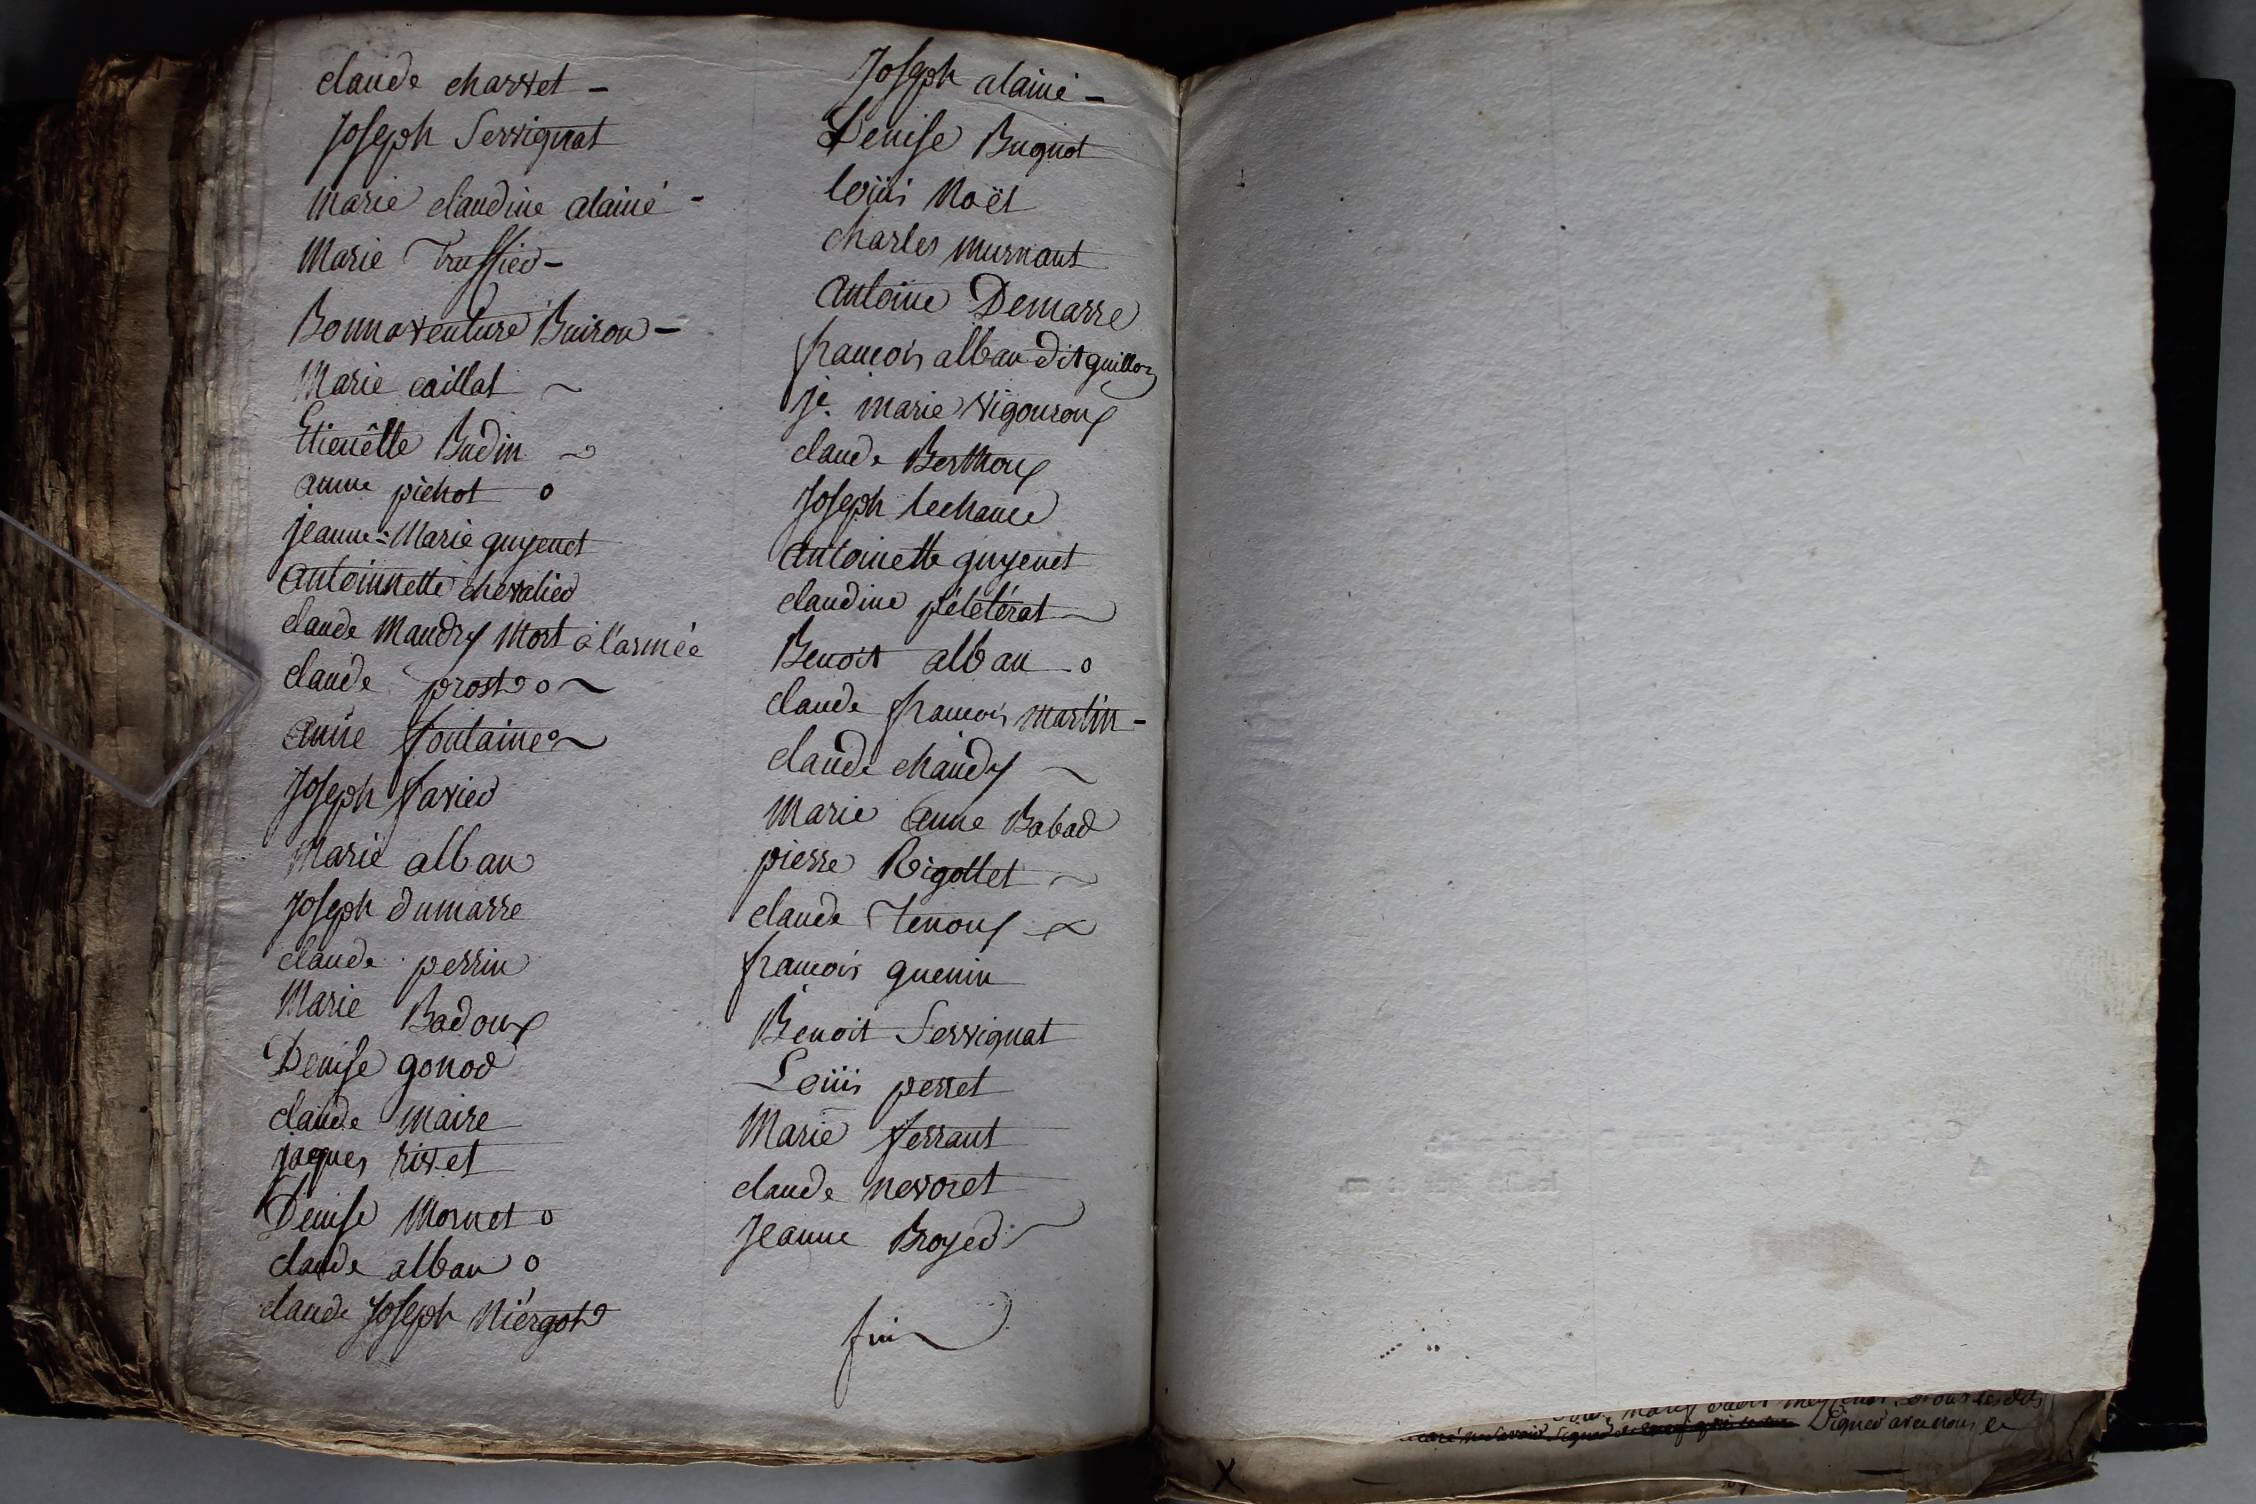 claude charvet -
Joseph Servignat
Marie claudine alainé -
Marie Truffier -
Bonnaventure Buiron -
Marie caillat ~
Etienêtte Budin ~
anne pichot o
jeanne-Marie guyenet
antoinnette chevalier
claude Maudry Mort à l'armée
claude prost o ~
anne fontaine o ~
Joseph favier
Marie alban
Joseph dumarre
claude perrin
Marie Badoux
Denise gonod
claude Maire
jaques rivet
Denise Mornet o
claude alban o
claude Joseph Niérgot
Joseph alainé -
Denise Bugnot
loüis Noët
charles murnant
antoine Demarre
francois alban dit guillon
je. marie vigouroux
claude Berthoux
Joseph lechance
antoinette guyenet
claudine péletérat
Benoit alban o
claude francois Martin -
claude chaudy ~
Marie anne Babad
pierre Rigottet ~
claude Tenoux
francois guenin
Benoit Servignat
Loüis perret
Marie ferrant
claude nevoret
Jeanne Broyer
fin
X